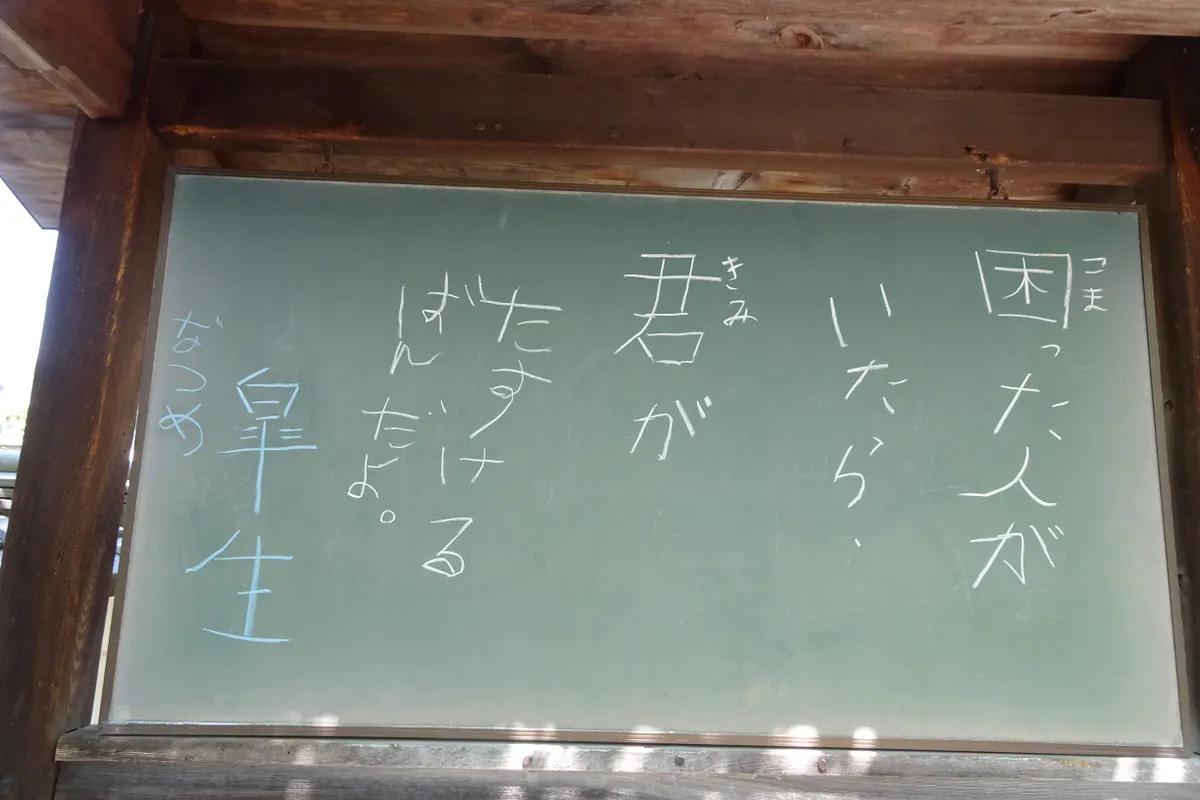 困った人が
こま
いたら、
君が
きみ
たすける
ばんだよ。
皐生
なつめ